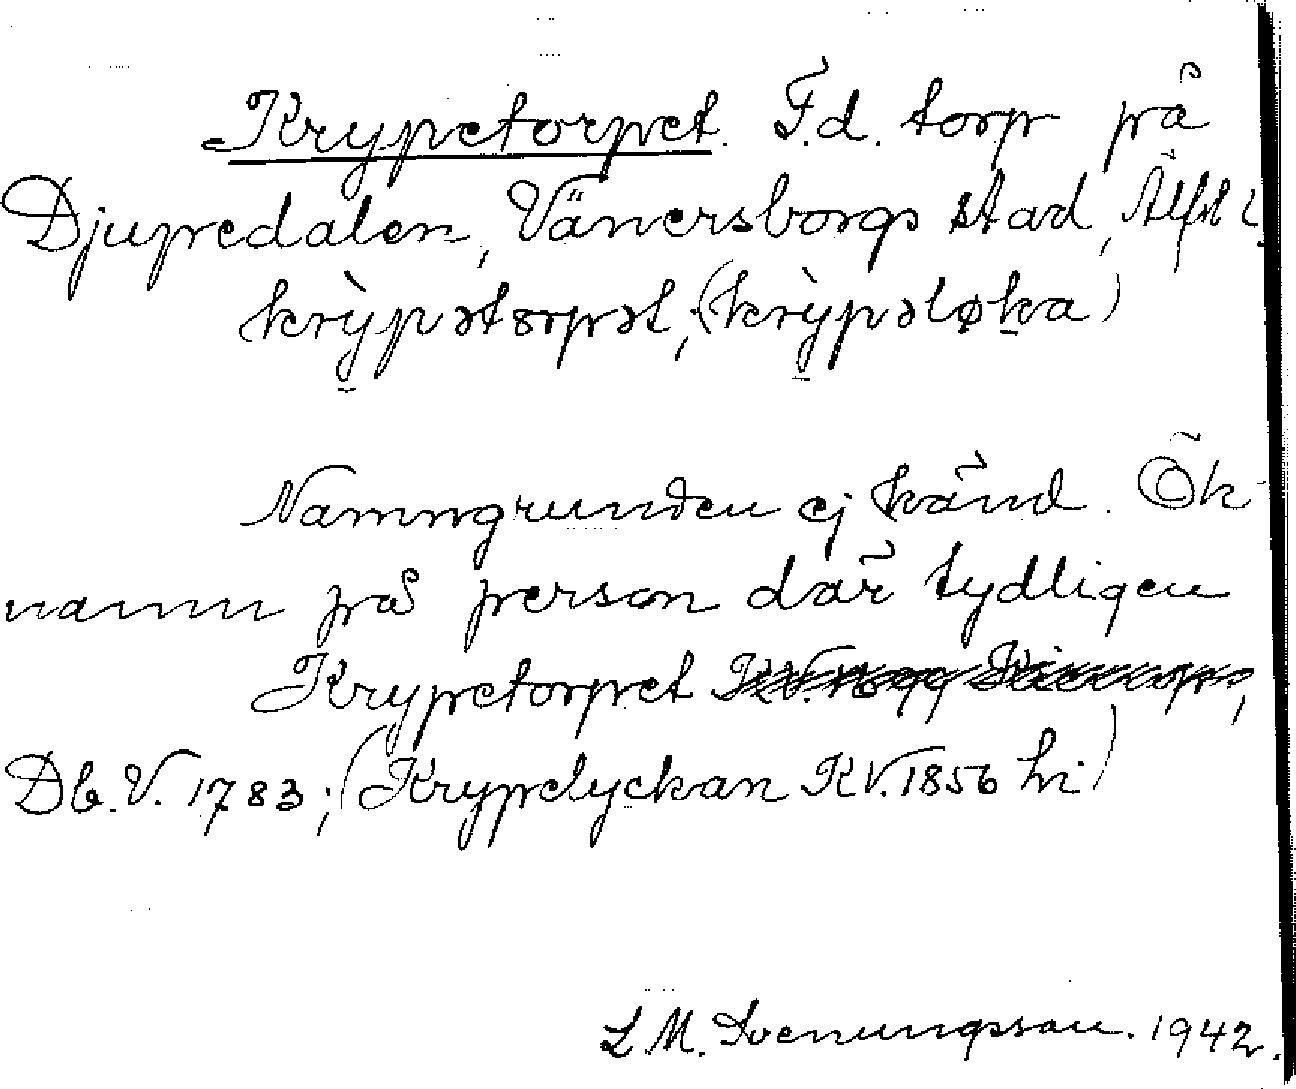 Krypetorpet. F.d. torp på
Djupedalen, Vänersborgs stad, Älfsb l.
krỳpətorpət, (krỳpəløka)
Namngrunden ej känd. Ök-
namn på person där tydligen
Krypetorpet
Db. V. 1783; (Krypelyckan KV. 1856 hi)
L M. Svenungsson. 1942.